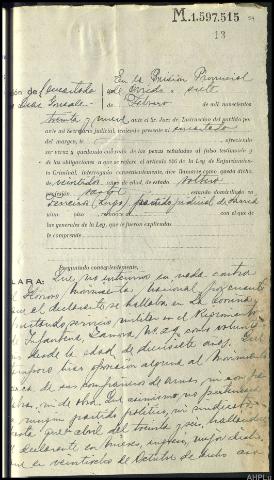 M.1.597.515
13
ión de encartado
Luis Gonzale
En la Prisión Provincial
de Oviedo a siete
de Febrero de mil novecientos
treinta y nueve ante el Sr. Juez de Instrucción del partido por
ante mí Secretario judicial, teniendo presente al encartado
del margen, le ofreciendo
ser veraz y quedando enterado de las penas señaladas al falso testimonio y
de las obligaciones a que se refiere el artículo 436 de la Ley de Enjuiciamien-
to Criminal, interrogado convenientemente, dijo: llamarse como queda dicho,
de veintidos años de edad, de estado soltero
profesión estando domiciliado en
Ferreira (Lugo), partido judicial de
núm. piso con el que de
las generales de la Ley, que le fueron explicadas
le comprende
Preguntado convenientemente,
LARA: Que no intervino en nada contra
Glorioso Movimiento Nacional, por cuanto
que el declarante se hallaba en La Coruña
prestando servicio militar en el Regimiento
de Infantería Zamora Nº 29 como volunt
desde la edad de diecisiete años. Que
tampoco hizo oposición alguna al Movimiento
cerca de sus compañeros de armas, ni con pa
labra, ni de obra. Que asimismo, no perteneció
a ningún partido político, ni sindicato
hasta que Abril del treinta y seis, hallándose
el declarante en Mieres, ingresó, mejor dicho,
que en veintiocho de Octubre de dicho año
AHPLU